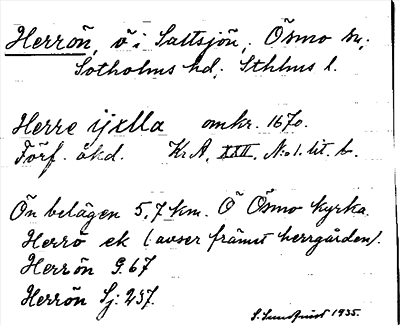 Herrön, ö i Saltsjön; Ösmo sn;
Sotholms hd; Sthlms l.
Herre ijella omkr. 1670.
Förf. åkd. K. A. XXII, N:o 1. lit. b.
Ön belägen 5,7 km. Ö Ösmo kyrka.
Herrö ek (avser främst herrgården).
Herrön G. 67
Herrön Sj: 237.
S. Sundqvist 1935.